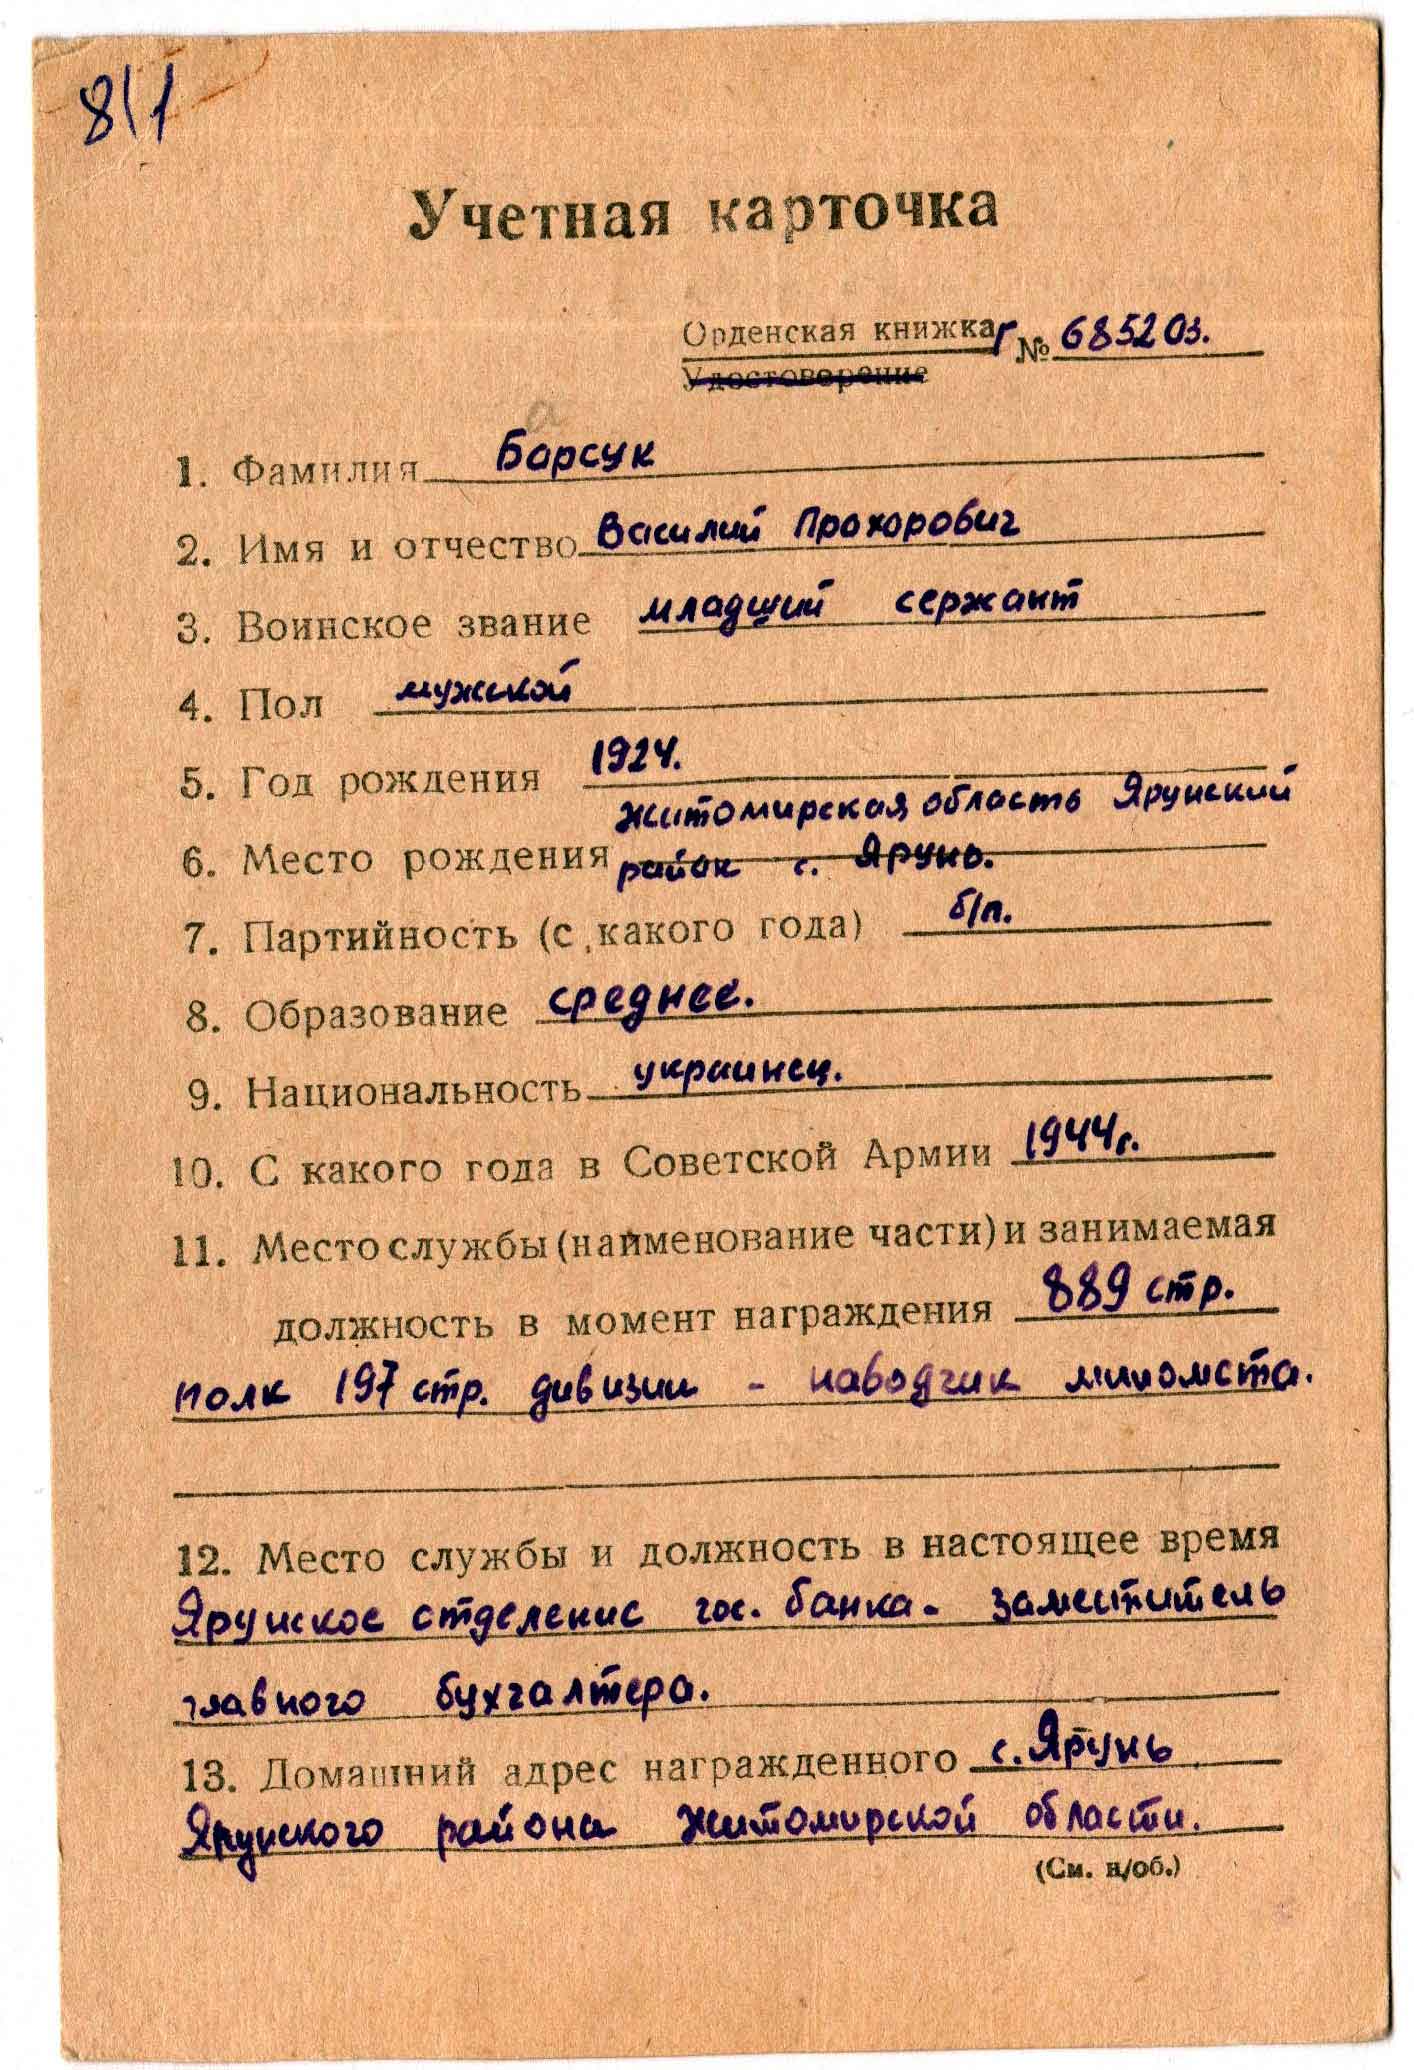 8/1
Учетная карточка
Орденская книжка Г № 685203.
Удостоверение
1. Фамилия Барсук
2. Имя и отчество Василий Прохорович
3. Воинское звание младший сержант
4. Пол мужской
5. Год рождения 1924.
Житомирская область Ярунский
6. Место рождения район с. Ярунь.
7. Партийность (с какого года) б/п.
8. Образование среднее.
9. Национальность украинец.
10. С какого года в Советской Армии 1944г.
11. Место службы (наименование части) и занимаемая
должность в момент награждения 889 стр.
полк 197 стр. дивизии - наводчик миномета.
12. Место службы и должность в настоящее время
Ярунское отделение гос. банка - заместитель
главного бухгалтера.
13. Домашний адрес награжденного с. Ярунь
Ярунского района Житомирской области.
(См. н/об.)